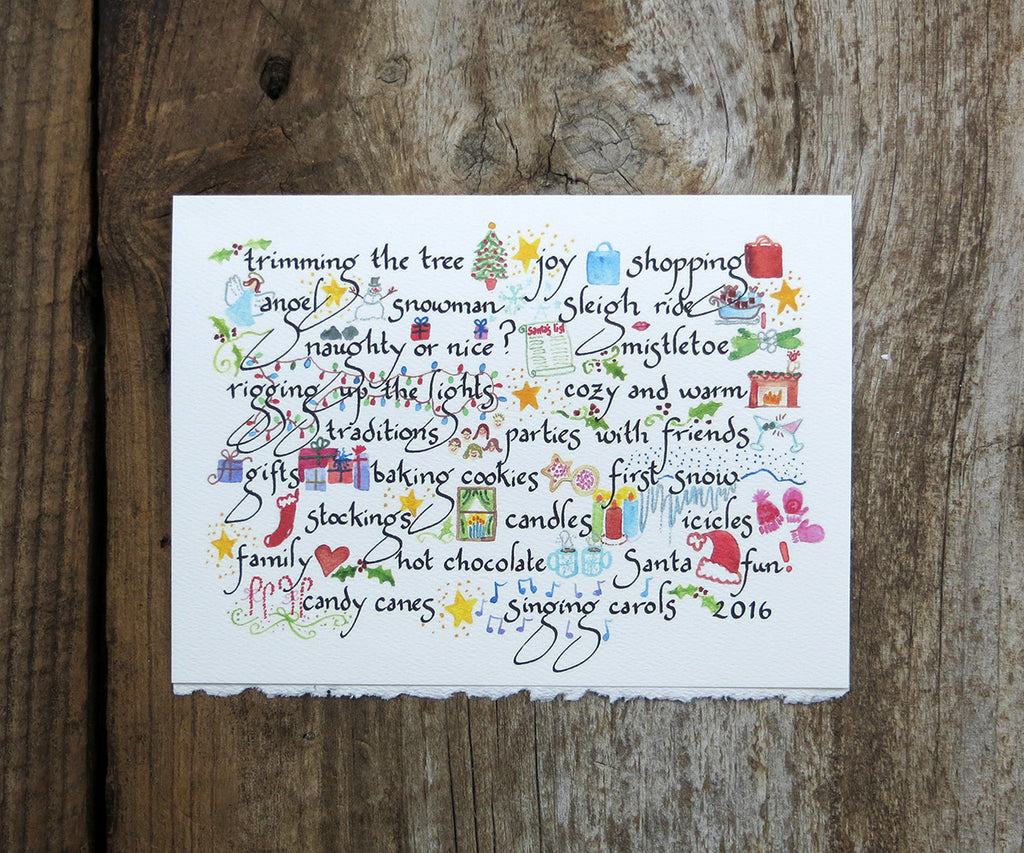 trimming the tree joy shopping
angel snowman sleigh ride
naughty or nice? Santa's list mistletoe
rigging up the lights cozy and warm
traditions parties with friends
gifts baking cookies first snow
stockings candles icicles
family hot chocolate Santa fun!
candy canes singing carols 2016